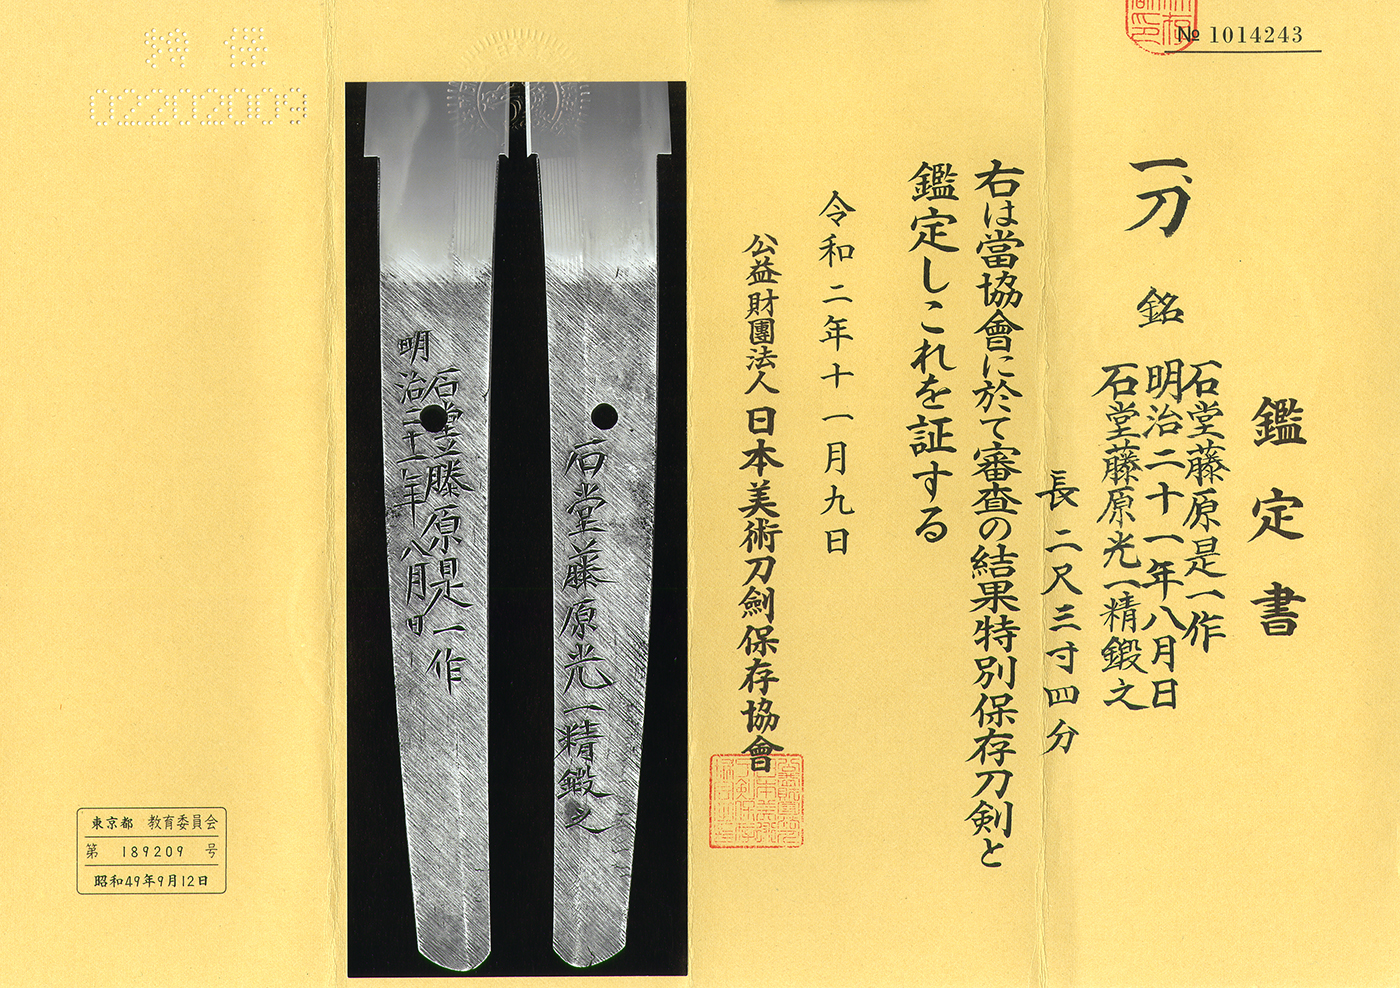 № 1014243
鑑定書
一、刀 銘
石堂藤原是一作
明治二十一年八月日
石堂藤原光一精鍛之
長二尺三寸四分
右は當協會に於て審査の結果特別保存刀剣と
鑑定しこれを証する
令和二年十一月九日
公益財團法人日本美術刀劍保存協會
石堂藤原光一精鍛之
石堂藤原是一作
明治二十一年八月日
02202009
東京都 教育委員会
第 189209 号
昭和49年9月12日